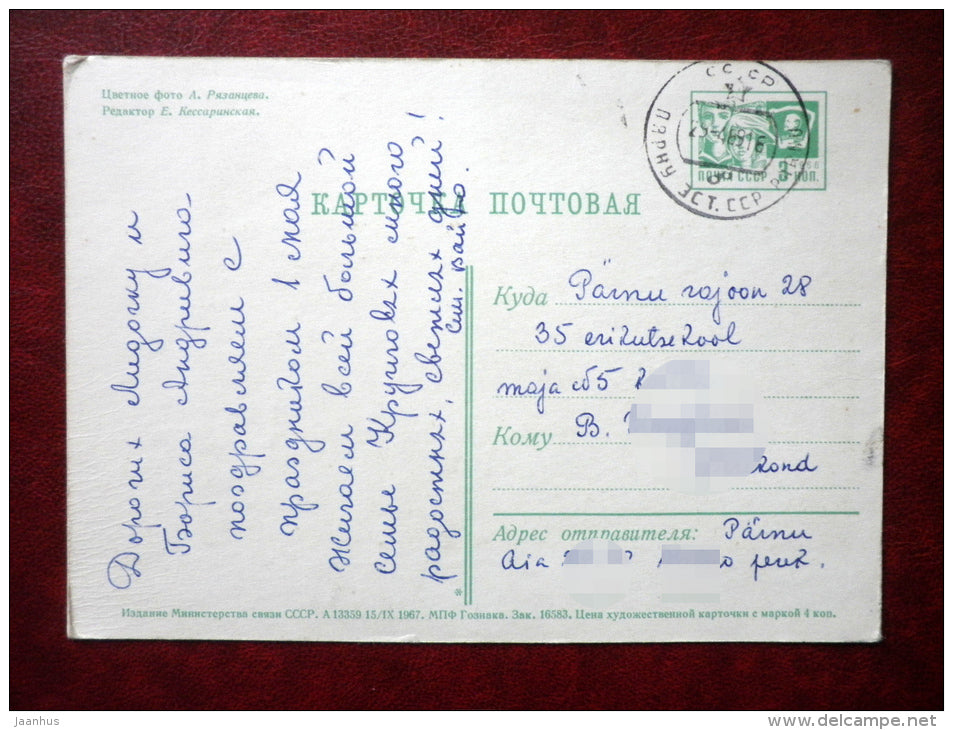 Цветное фото А. Рязанцева.
Редактор Е. Кессаринская.
СССР
ПЯРНУ ЭСТ. ССР
ПОЧТА СССР 3 КОП.
1966
КАРТОЧКА ПОЧТОВАЯ
Дорогих Лидочку и
Бориса Андривича
поздравляем с
праздником 1 мая
Желаем всей большой
семье Кругловых много
радостных, светлых дней!
сем. Вайно.
Куда Pärnu rajoon 28
35 erikutsekool
maja 5
Кому В.
kond
Адрес отправителя: Pärnu
Aia perek.
*
Издание Министерства связи СССР. А 13359 15/IX 1967. МПФ Гознака. Зак. 16583. Цена художественной карточки с маркой 4 коп.
Jaanhus
www.delcampe.net